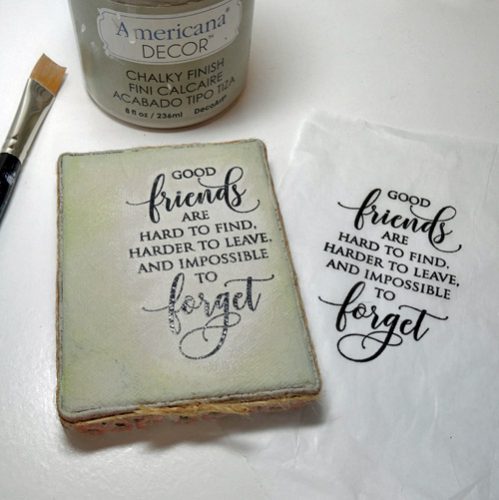 Americana®
DECOR™
CHALKY FINISH
FINI CALCAIRE
ACABADO TIPO TIZA
8 fl oz / 236ml DecoArt®
GOOD
friends
ARE
HARD TO FIND,
HARDER TO LEAVE,
AND IMPOSSIBLE
TO
forget
GOOD
friends
ARE
HARD TO FIND,
HARDER TO LEAVE,
AND IMPOSSIBLE
TO
forget